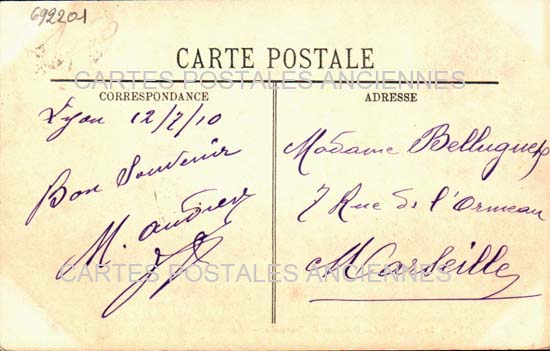 692201
CARTE POSTALE
CARTES POSTALES ANCIENNES
CORRESPONDANCE
ADRESSE
Lyon 12/7/10
Bon Souvenir
M.
Madame
7 Rue de l'Ormeau
Marseille
CARTES POSTALES ANCIENNES